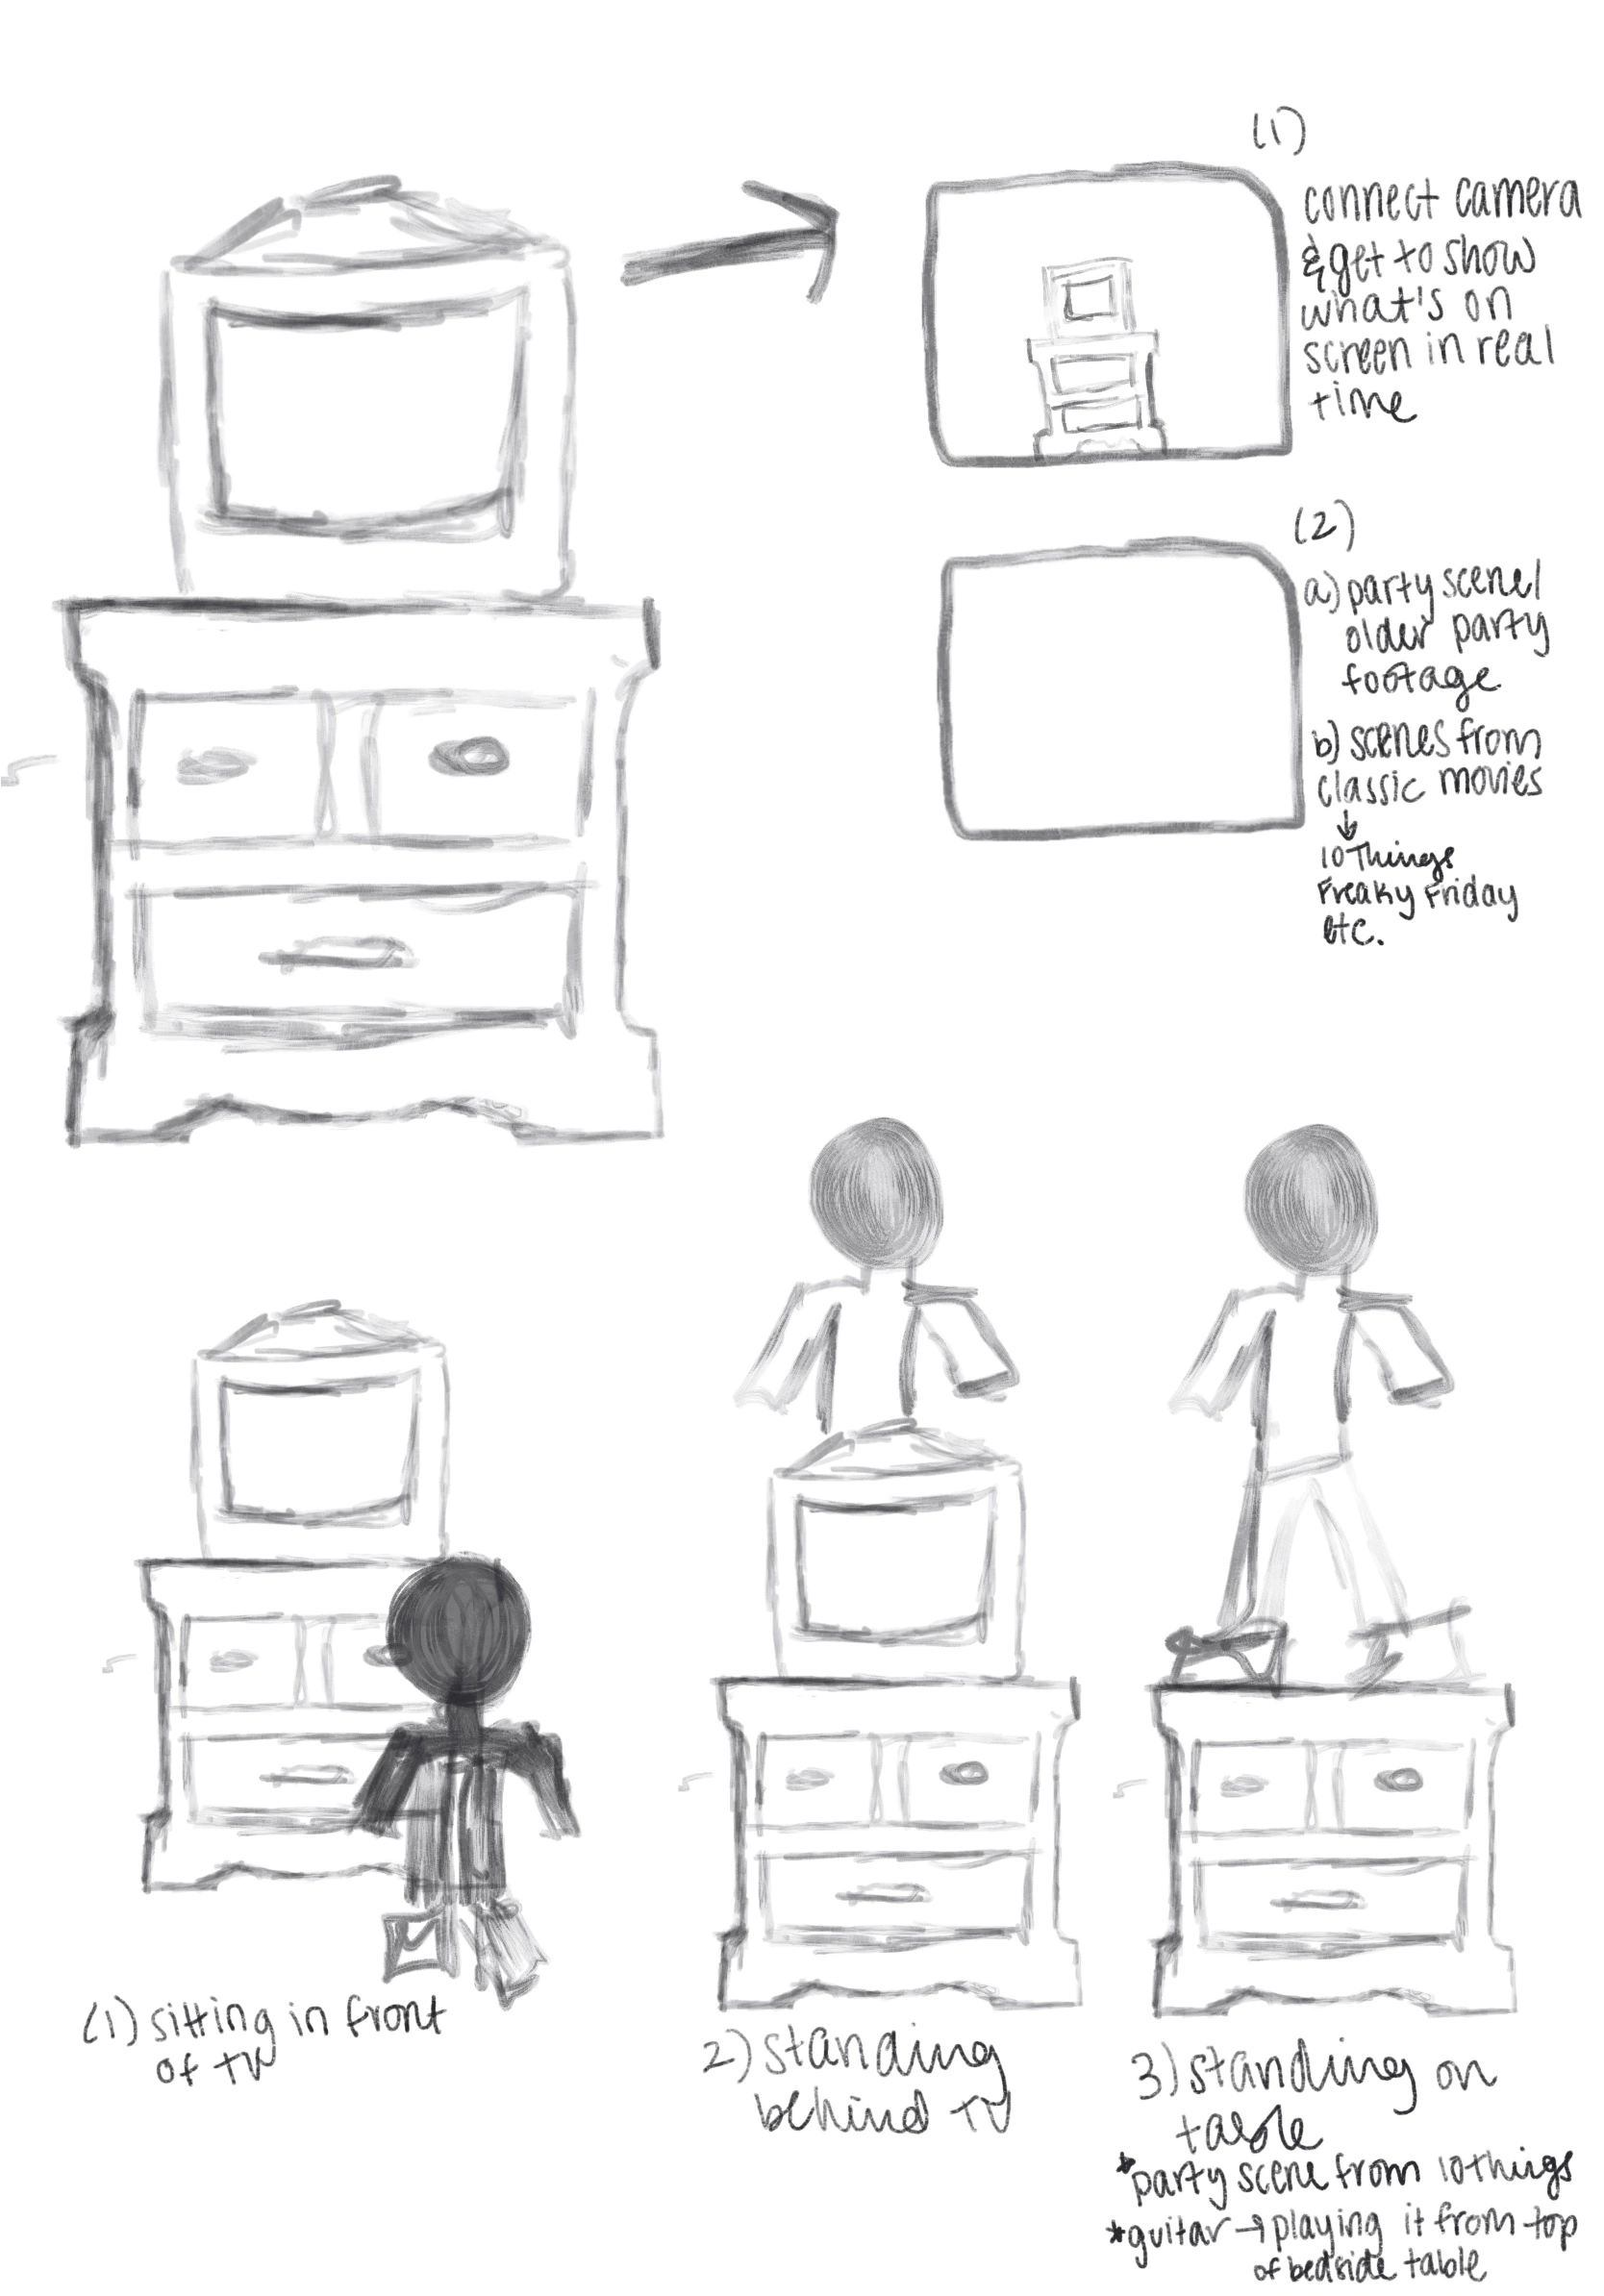 (1)
connect camera
& get to show
what's on
screen in real
time
(2)
a) party scene/
older party
footage
b) scenes from
classic movies
↓
10 Things
Freaky Friday
etc.
(1) sitting in front
of TV
2) standing
behind TV
3) standing on
table
*party scene from 10 things
*guitar → playing it from top
of bedside table